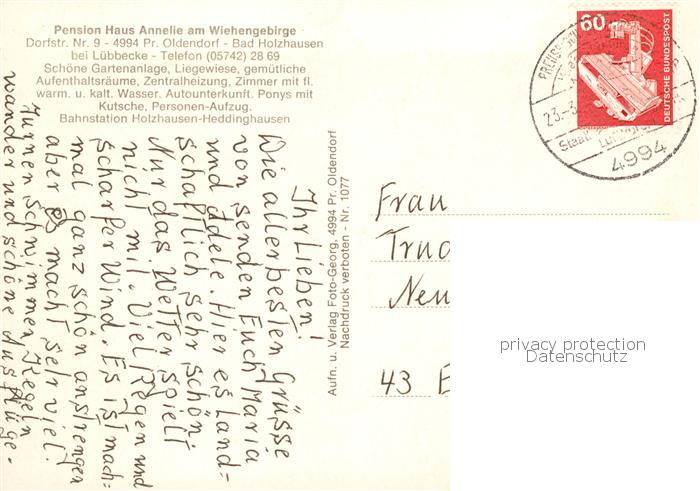 Pension Haus Annelie am Wiehengebirge
Dorfstr. Nr. 9 - 4994 Pr. Oldendorf - Bad Holzhausen
bei Lübbecke - Telefon (05742) 28 69
Schöne Gartenanlage, Liegewiese, gemütliche
Aufenthaltsräume, Zentralheizung, Zimmer mit fl.
warm. u. kalt. Wasser. Autounterkunft. Ponys mit
Kutsche, Personen-Aufzug.
Bahnstation Holzhausen-Heddinghausen
Ihr Lieben!
Die allerbesten Grüsse
von senden Euch Maria
und Adele. Hier es Land=
schaftlich sehr schön;
Nur das Wetter spielt
nicht mit. Viel Regen und
scharfer Wind. Es ist mach=
mal ganz schön anstrengen
aber es macht sehr viel.
Turnen schwimmen Kegeln
wandern und schöne Ausflüge-
Aufn. u. Verlag Foto-Georg, 4994 Pr. Oldendorf
Nachdruck verboten - Nr. 1077
60
DEUTSCHE BUNDESPOST
23.-3.
4994
Frau
Trud
Neu
43 E
privacy protection
Datenschutz